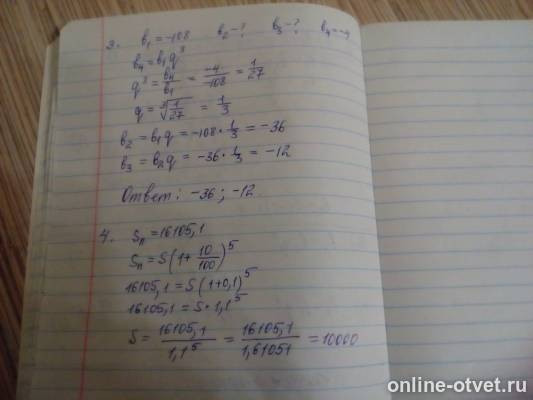 3. b₁ = -108 b₂ - ? b₃ - ? b₄ = -4
b₄ = b₁q³
q³ = b₄/b₁ = -4/-108 = 1/27
q = ∛(1/27) = 1/3
b₂ = b₁q = -108 · 1/3 = -36
b₃ = b₂q = -36 · 1/3 = -12
Ответ: -36; -12
4. Sₙ = 16105,1
Sₙ = S(1 + 10/100)⁵
16105,1 = S(1+0,1)⁵
16105,1 = S · 1,1⁵
S = 16105,1/1,1⁵ = 16105,1/1,61051 = 10000
online-otvet.ru